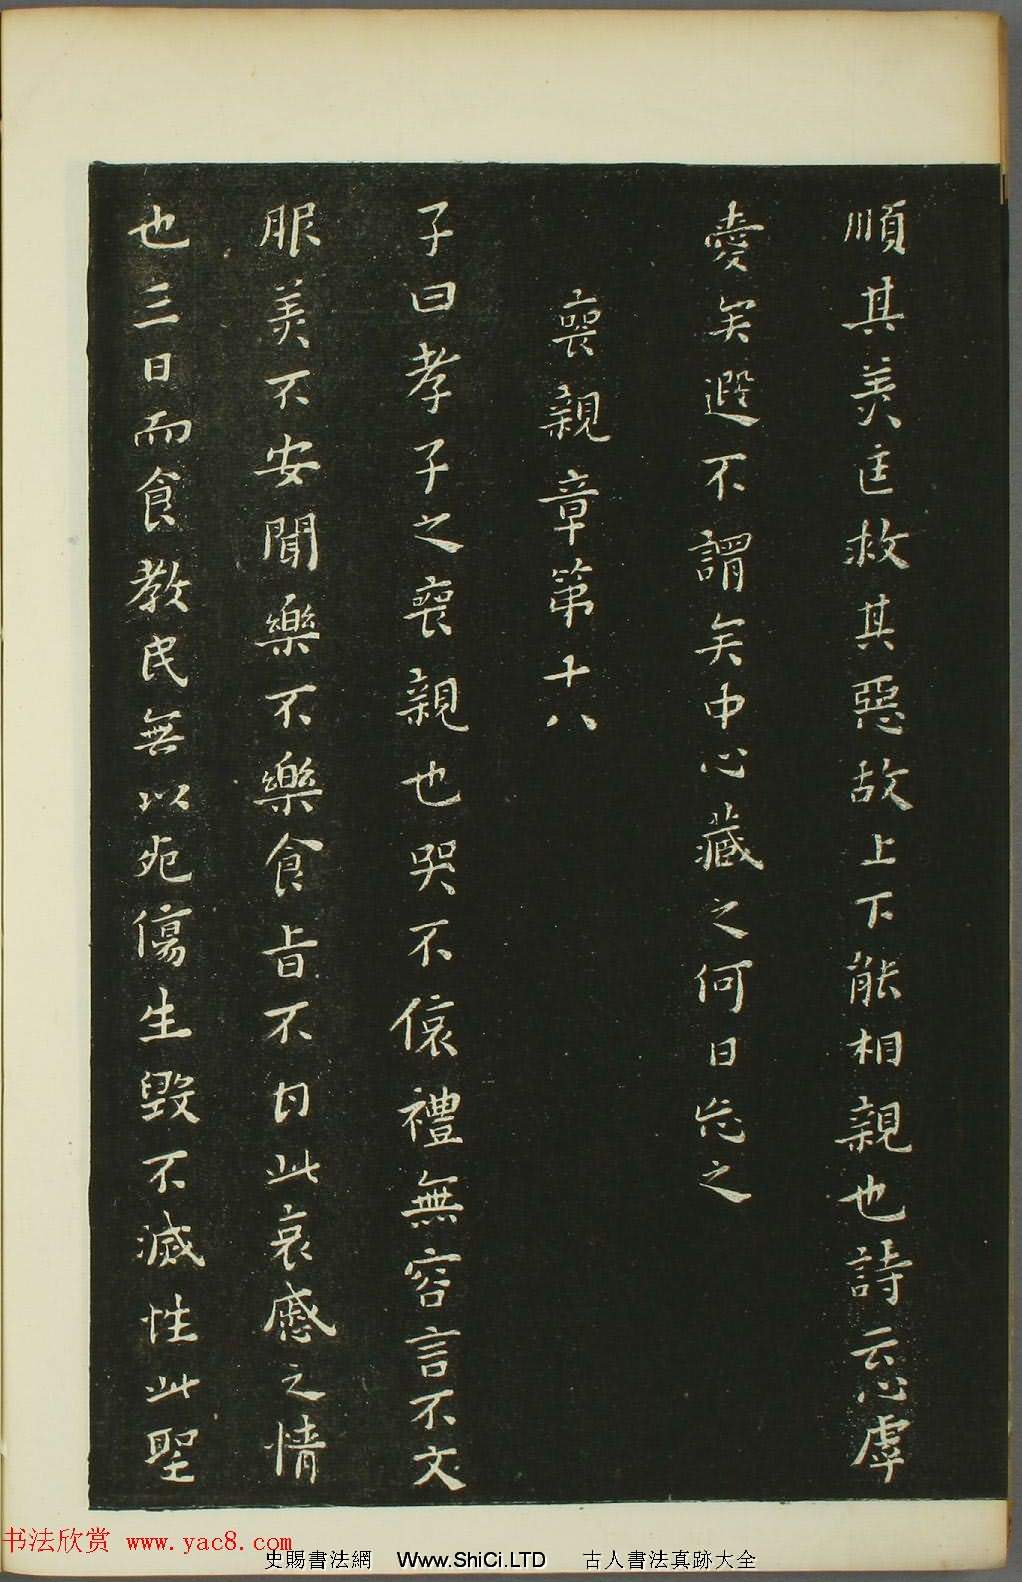 順其美匡救其惡故上下能相親也詩云心虖
愛矣遐不謂矣中心藏之何日忘之
喪親章第十八
子曰孝子之喪親也哭不偯禮無容言不文
服美不安聞樂不樂食旨不甘此哀慼之情
也三日而食教民無以死傷生毀不滅性此聖
书法欣赏 www.yac8.com
史賜書法網 Www.ShiCi.LTD 古人書法真跡大全